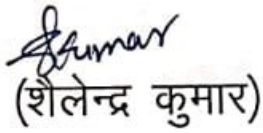 SKumar
(शैलेन्द्र कुमार)